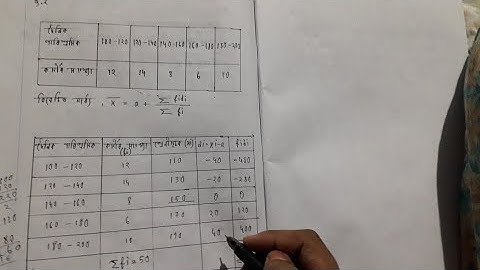 দৈনিক
পাৰিশ্ৰমিক 100-120 120-140 140-160 160-180 180-200
কৰ্মীৰ সংখ্যা 12 14 8 6 10
মাধ্য, x̄ = a + Σfidi / Σfi
দৈনিক পাৰিশ্ৰমিক কৰ্মীৰ সংখ্যা (fi) (xi) di = xi-a fidi
100 - 120 12 110 -40 -480
120 - 140 14 130 -20 -280
140 - 160 8 150 0 0
160 - 180 6 170 20 120
180 - 200 10 190 40 400
Σfi = 50